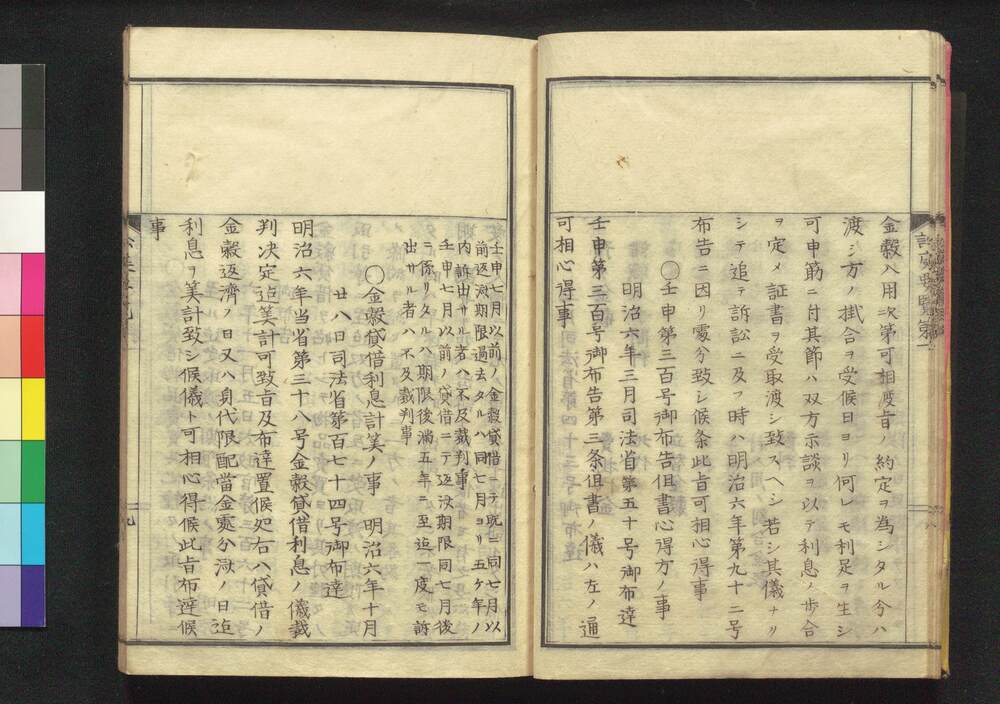 金穀ハ用次第可相渡旨ノ約定ヲ為シタル分ハ
渡シ方ノ掛合ヲ受候日ヨリ何レモ利足ヲ生シ
可申筋ニ付其節ハ双方示談ヲ以テ利息ノ歩合
ヲ定メ証書ヲ受取渡シ致スヘシ若シ其儀ナク
シテ追テ訴訟ニ及フ時ハ明治六年第九十二号
布告ニ因リ処分致シ候条此旨可相心得事
〇壬申第三百号御布告但書心得方ノ事
明治六年三月司法省第五十号御布達
壬申第三百号御布告第三条但書ノ儀ハ左ノ通
可相心得事
八
壬申七月以前ノ金穀貸借ニテ既ニ同七月以
前返済期限過去タルハ同七月ヨリ五ケ年ノ
内訴出サル者ハ不及裁判事
壬申七月以前ノ貸借ニテ返済期限同七月後
ニ係リタルハ期限後満五年ニ至迄一度モ訴
出サル者ハ不及裁判事
〇金穀貸借利息計算ノ事 明治六年十月
廿八日司法省第百七十四号御布達
明治六年当省第三十八号金穀貸借利息ノ儀裁
判决定迄算計可致旨及布達置候処右ハ貸借ノ
金穀返済ノ日又ハ身代限配當金処分済ノ日迄
利息ヲ算計致シ候儀ト可相心得候此旨布達候
事
九